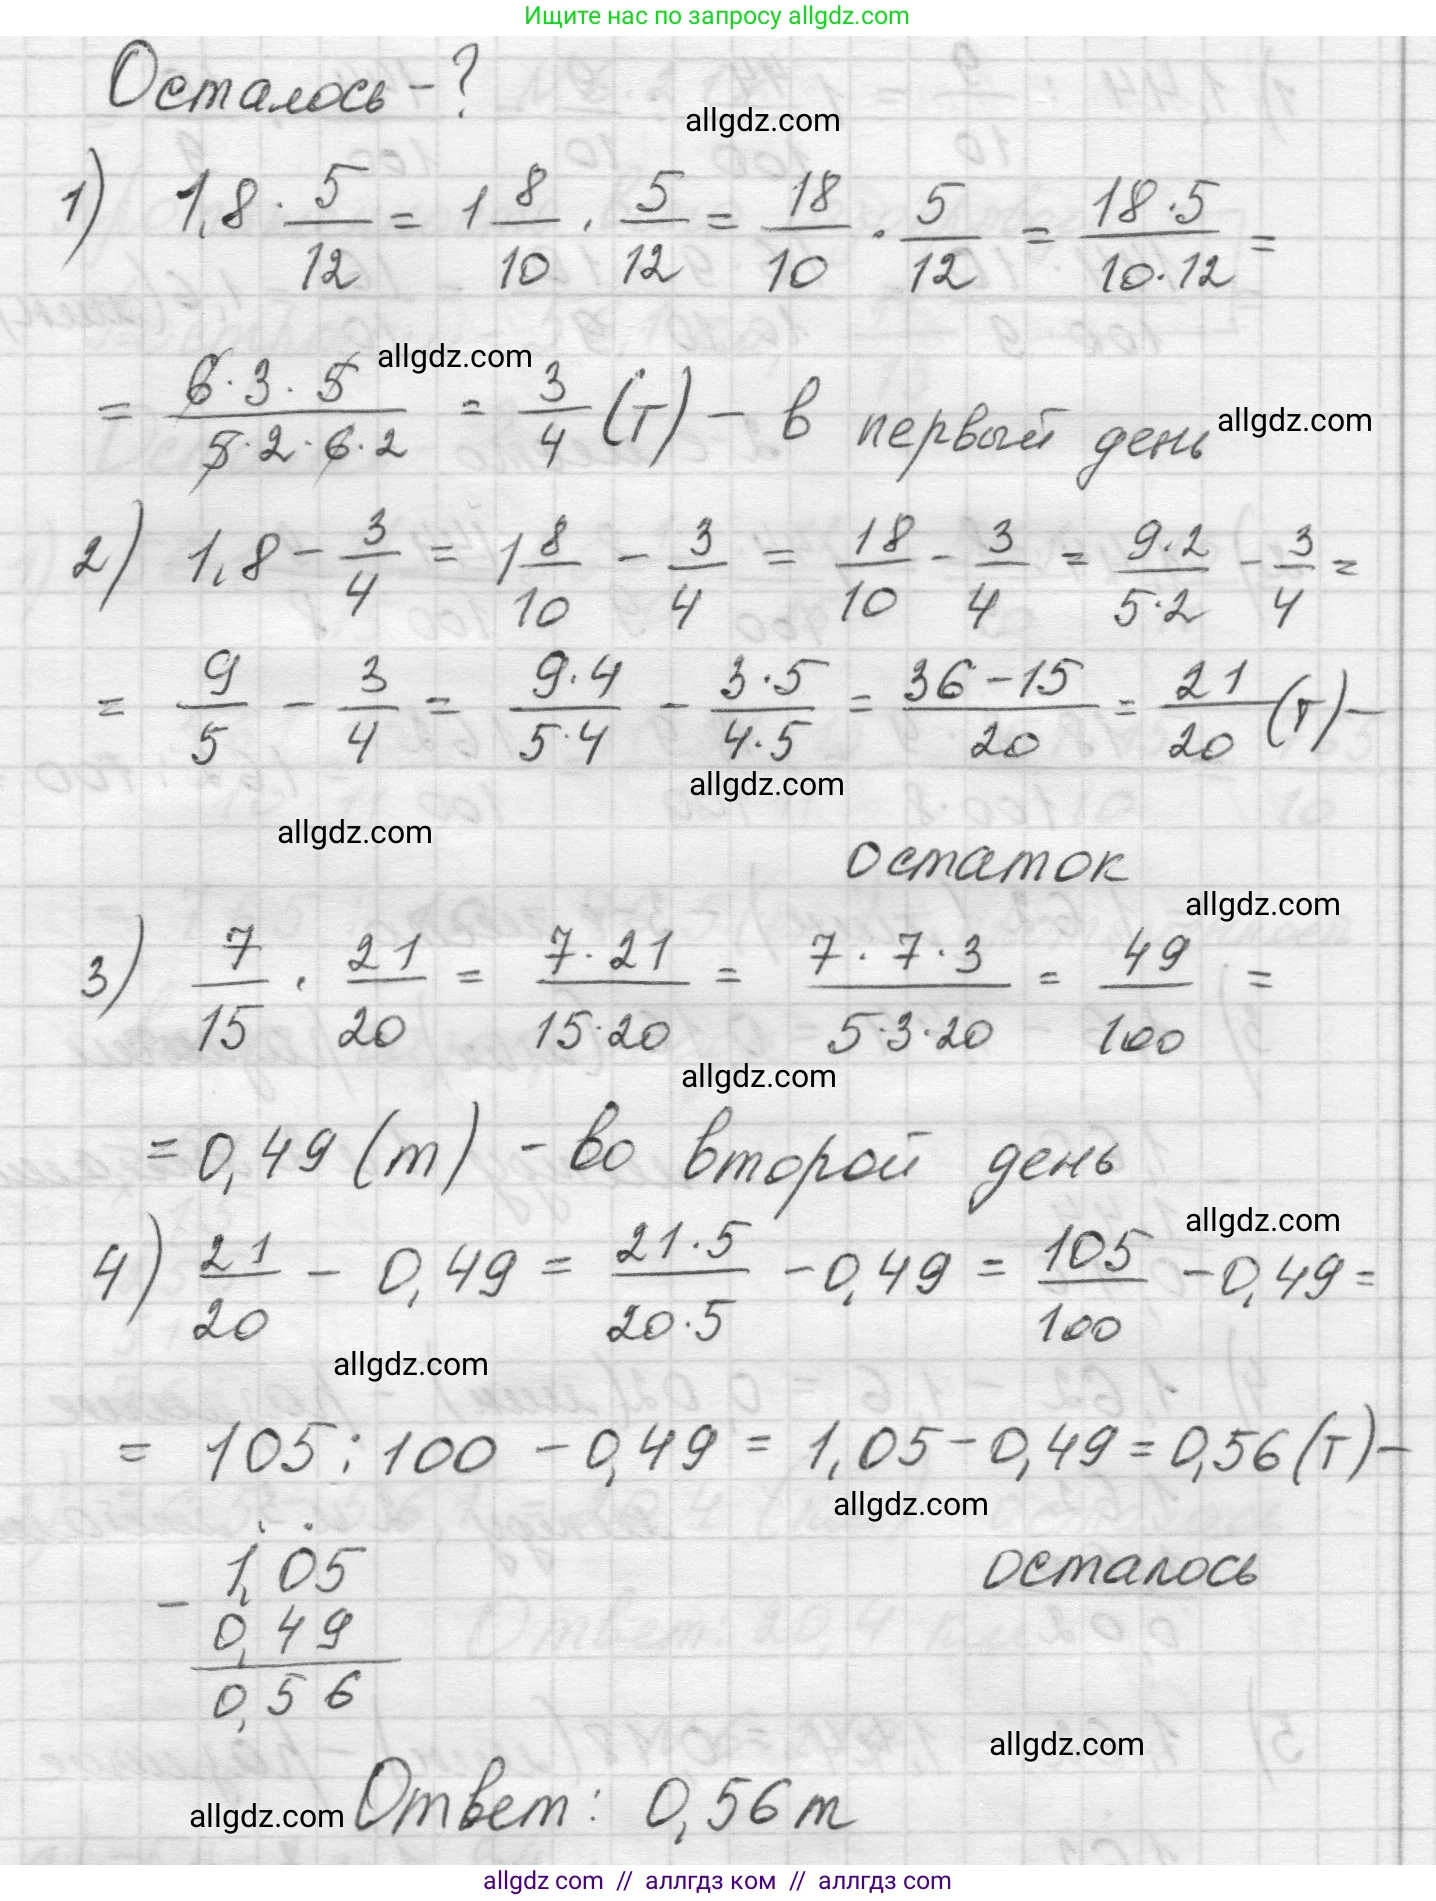 Ищите нас по запросу allgdz.com
Осталось - ?
allgdz.com
1) 1,8 · 5/12 = 1 8/10 · 5/12 = 18/10 · 5/12 = 18·5/10·12 =
allgdz.com
= 6·3·5/5·2·6·2 = 3/4 (т) - в первый день
allgdz.com
2) 1,8 - 3/4 = 1 8/10 - 3/4 = 18/10 - 3/4 = 9·2/5·2 - 3/4 =
= 9/5 - 3/4 = 9·4/5·4 - 3·5/4·5 = 36-15/20 = 21/20 (т) -
allgdz.com
allgdz.com
остаток
allgdz.com
3) 7/15 · 21/20 = 7·21/15·20 = 7·7·3/5·3·20 = 49/100 =
allgdz.com
= 0,49 (т) - во второй день
allgdz.com
4) 21/20 - 0,49 = 21·5/20·5 - 0,49 = 105/100 - 0,49 =
allgdz.com
= 105 : 100 - 0,49 = 1,05 - 0,49 = 0,56 (т) -
allgdz.com
осталось
- 1,05
0,49
0,56
allgdz.com
allgdz.com
Ответ: 0,56 т
allgdz com // аллгдз ком // аллгдз com